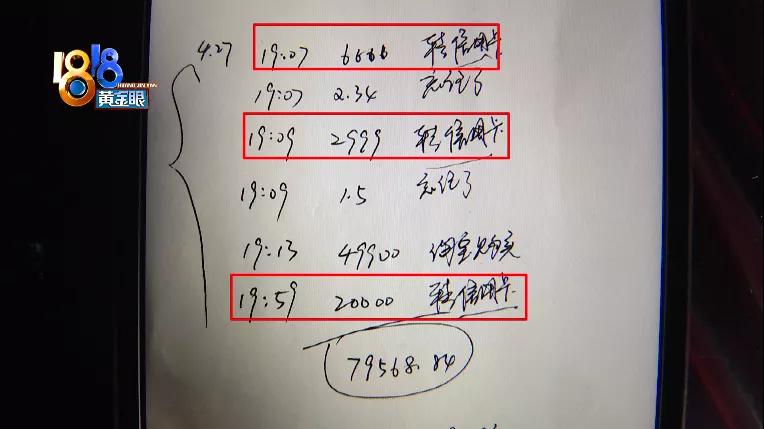 4.27 19:07 6666 转信用卡
1818
HUANGJINYAN
黄金眼
19:07 2.34 忘记了
19:09 2999 转信用卡
19:09 1.5 忘记了
19:13 49900 淘宝购买
19:59 20000 转信用卡
79568.84